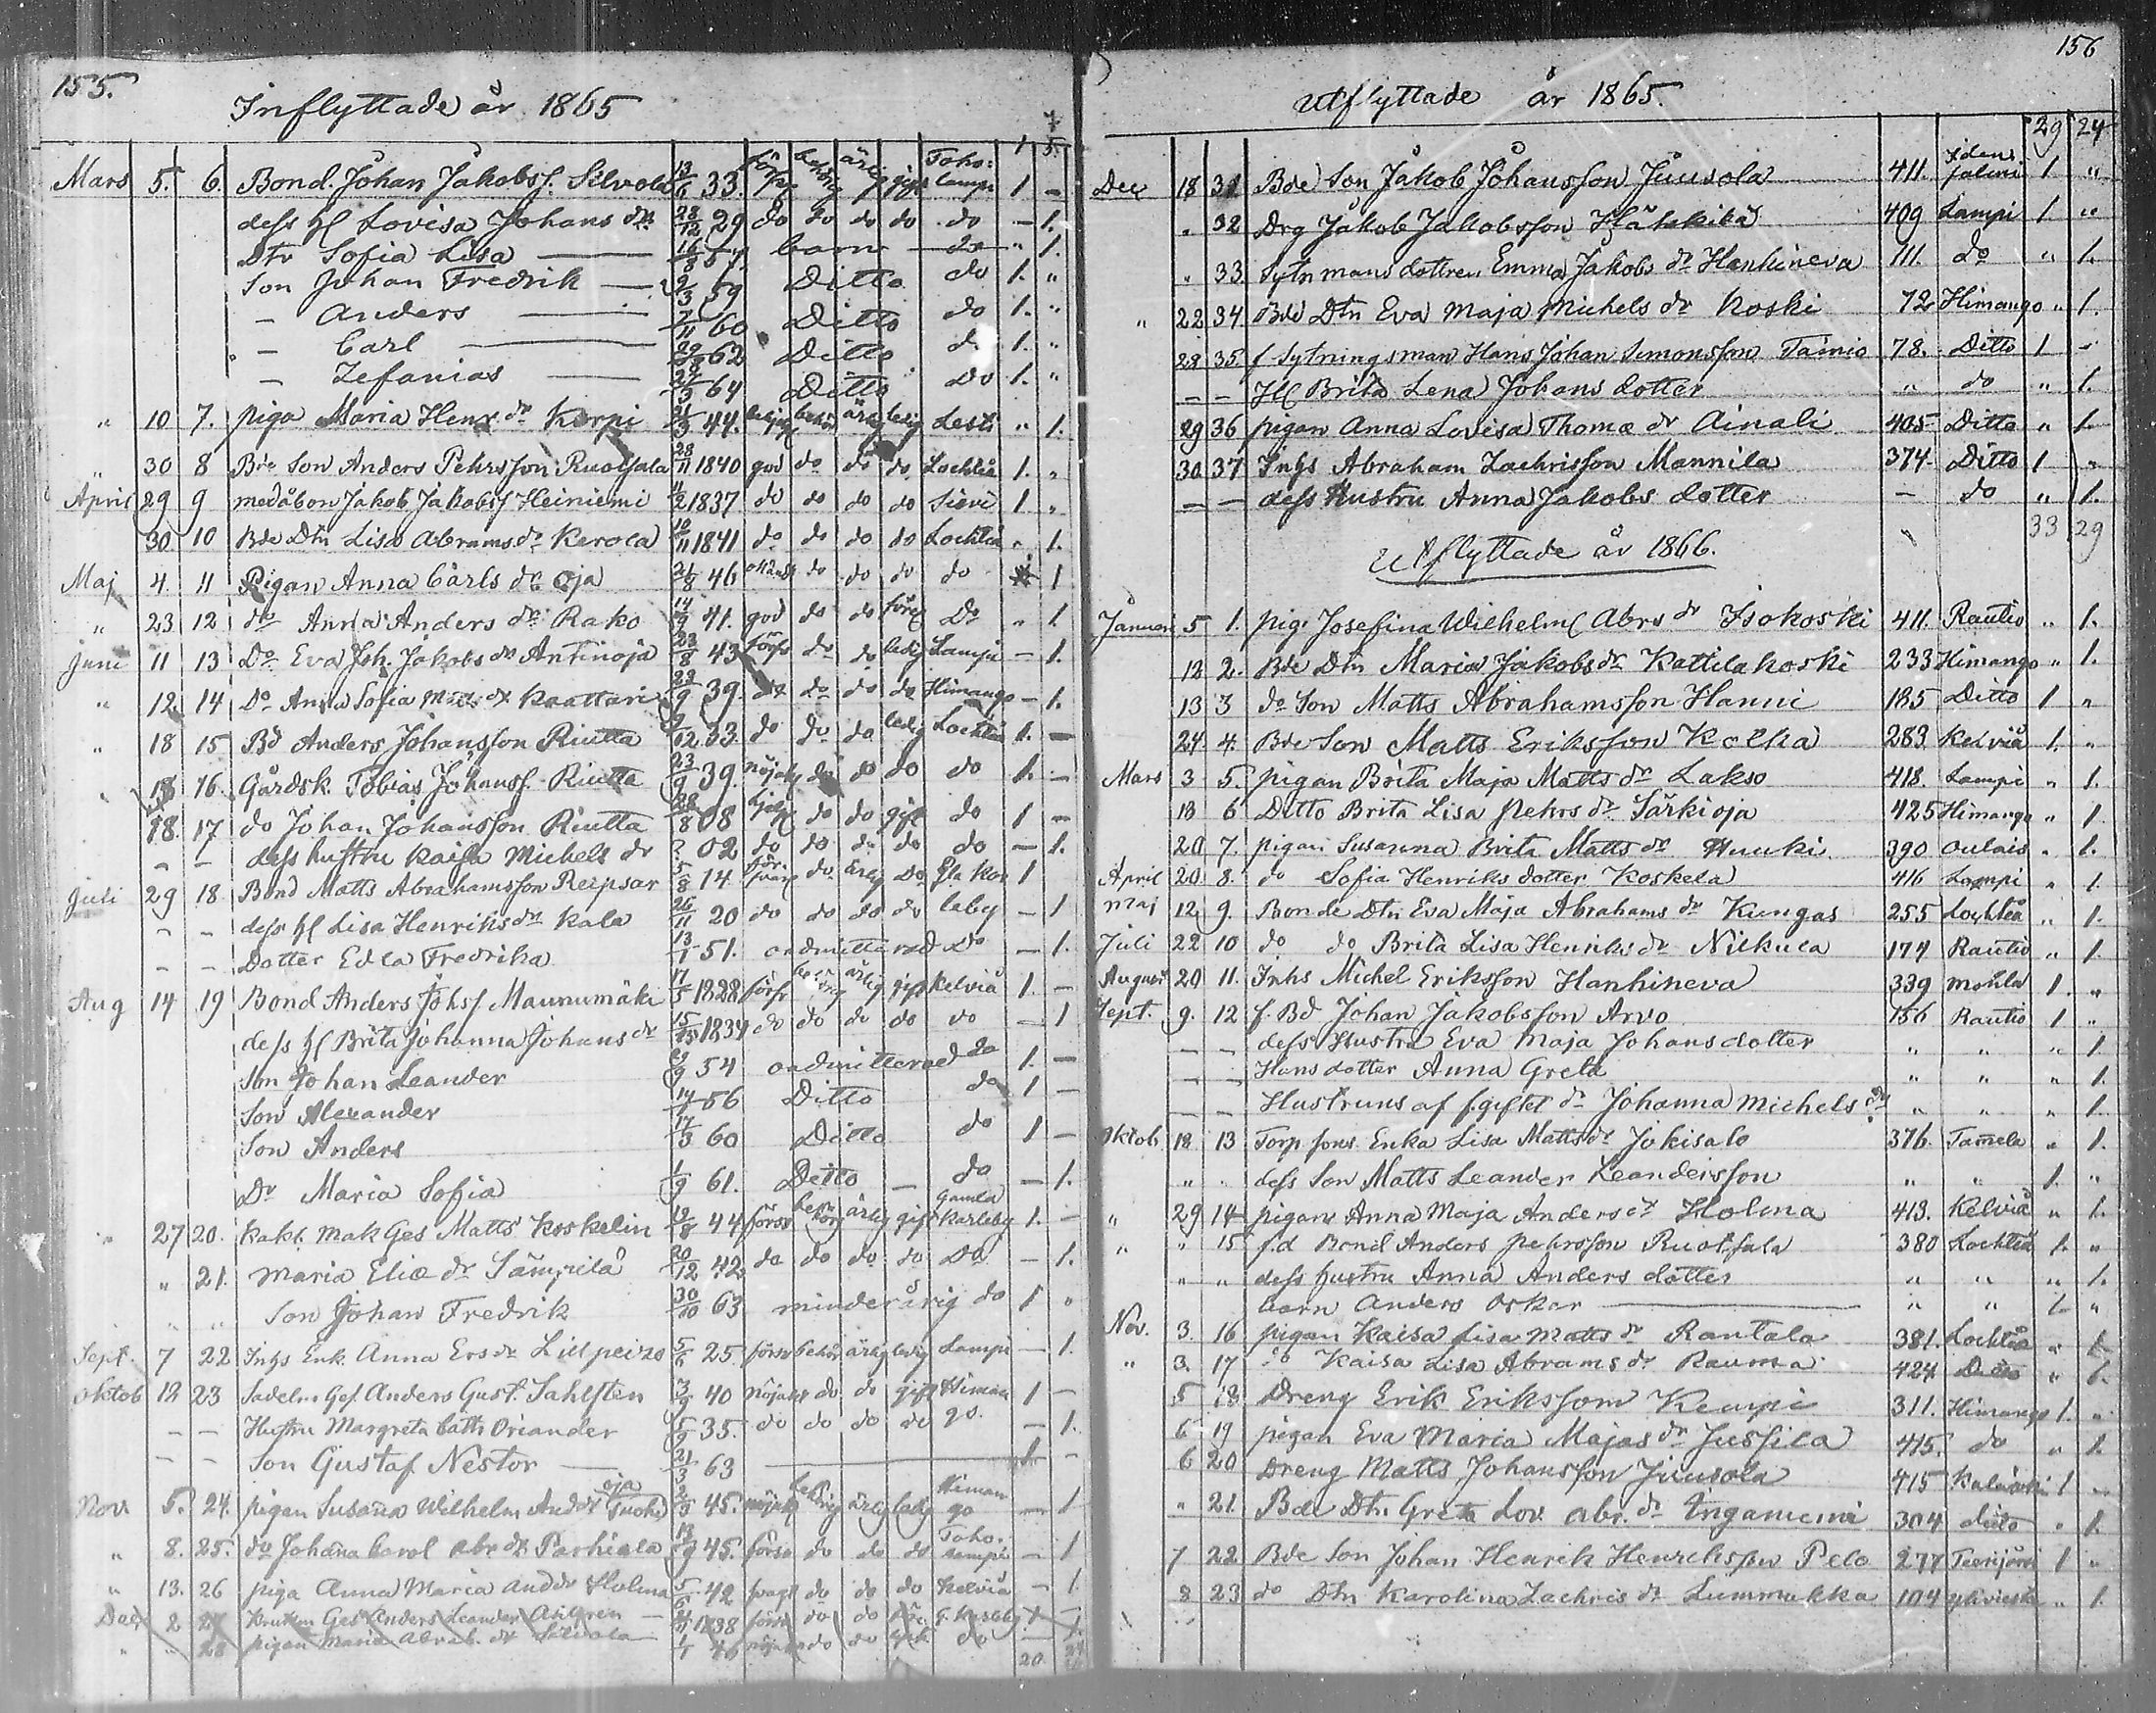 155.
Inflyttade år 1865
1 5.
Mars 5. 6. Bond. Johan Jakobss. Silvola 13/6 33. för sv behörig ärlig gift Toho: lampi 1 –
dess hl Lovisa Johans dr 28/12 29 do do do do do – 1.
Dtr Sofia Lisa — 16/8 57. barn do " 1.
Son Johan Fredrik — 2/3 59 Ditto do 1. "
– Anders — 7/11 60 Ditto do 1. "
– Carl — 29/8 62 Ditto d. 1. "
– Zefanias — 27/3 64 Ditto Do 1. "
" 10 7. piga Maria Henr. dr Korpi 44. ärlig ledig Lesti " 1.
" 30 8 Bde Son Anders Pehrsson Ruotsala 28/11 1840 god do do do Lochteå 1. "
April 29 9 medåbon Jakob Jakobss Heiniemi 11/2 1837 do do do do Sievi 1. "
30 10 Bde Dtn Lisa Abramsdr Kerola 10/11 1841 do do do do Lochteå " 1.
Maj 4. 11 Pigan Anna Carls dr Oja 21/8 46 okänd do do do do 1
" 23 12 do Anna Anders dr Rako 14/9 41. god do do Do " 1
Juni 11 13 Do Eva Joh. Jakobs dr Antinoja 22/8 43 försv do do ledig Lampi – 1.
" 12 14 Do Anna Sofia Mats dr Kaattari 23/9 39. do do do do Himango – 1.
" 18 15 Bd Anders Johansson Riutta 9/12 33. do do do ledig Lochteå 1. –
" 18 16. Gårdsk. Tobias Johanss. Riutta 23/9 39. nöjakt do do do do 1. –
18. 17 do Johan Johansson Riutta 28/8 08 hjelp do do gift do 1 –
– – dess hustru Kaisa Michels dr ? 02 do do do do do – 1.
Juli 29 18 Bond Matts Abrahamsson Reipsar 5/8 14. för svarl do ärlig Do Gla Kar 1
– – dess hl Lisa Henriks dr Kala 26/11 20 do do do do leby – 1
– – Dotter Edla Fredrika 13/1 51. oadmitterad Do – 1.
Aug 14 19 Bond Anders Johss Maunumäki 17/5 1828 försv behörig ärlig gift Kelviå 1. –
dess hl Brita Johanna Johans dr 15/10 1834 do do do do do – 1
Son Johan Leander 54 oadmitterad do 1. –
Son Alexander 14/1 56 Ditto do 1 –
Son Anders 17/3 60 Ditto do 1 –
Dr Maria Sofia 1/9 61. Ditto – do – 1.
" 27 20. Kakl. mak Ges Matts Koskelin 19/8 44 försv behörig ärlig gift Gamla Karleby 1. –
" 21. Maria Eliæ dr Sämpilä 20/12 42 do do do do Do – 1.
" " Son Johan Fredrik 30/10 63 minderårig do 1 "
Sept. 7 22 Inhs Enk. Anna Ers dr Lillpeizo 5/6 25. försv behör ärlig ledig Lampi – 1.
Oktob 12 23 Sadelm Ges. Anders Gust. Sahlsten 3/9 40 nöjakt do do gift Himan 1 –
– – Hustru Margreta Cath Oriander 5/9 35. do do do do go. – 1.
– – Son Gustaf Nestor — 21/3 63 1 –
Nov. 5. 24. pigan Susana Wilhelm And dr Tuoki oja 2/5 45. nöjakt behörig ärlig ledig Himan go – 1
" 8. 25. do Johana Carol Abr dr Parhiala 13/9 45. försv do do do Toho: lampi – 1
" 13. 26 piga Anna Maria And dr Holma 5/6 42 svagt do do do Kelviå – 1.
Dec 2 27 Krukm Ges Anders Leander Ahlgren — 1838 försv do do G. Karleby 1. –
" " 28 pigan Maria Abrah. dr Silvola 46 nöjakt do do gift do –
20
156
Utflyttade år 1865.
29 24
Dec 18 31 Bde Son Jakob Johansson Juusola 411. Idens salmi 1 "
" 32 Drg Jakob Jakobsson Hätekilä 409 Lampi 1. "
" 33. Sytn mans dottren Emma Jakobs dr Hanhineva 111. do " 1.
" 22 34. Bde Dtn Eva Maja Michels dr Koski 72 Himango " 1.
28 35. f. Sytningsman Hans Johan Simonsson Tainio 78. Ditto 1 "
– – Hl Brita Lena Johans dotter " do " 1.
29 36 pigan Anna Lovisa Thomæ dr Ainali 405 Ditto " 1.
30 37 Inhs Abraham Zachrisson Mannila 374. Ditto 1 "
– – dess Hustru Anna Jakobs dotter – do " 1.
33 29
Utflyttade år 1866.
Januari 5 1. pig. Josefina Wilhelm Abrs dr Isokoski 411. Rautio " 1.
12 2. Bde Dtn Maria Jakobs dr Kattilakoski 233 Himango " 1.
13 3 do Son Matts Abrahamsson Hanni 185 Ditto 1 "
24 4. Bde Son Matts Eriksson Kolka 283 Kelviå 1. "
Mars 3 5. pigan Brita Maja Matts dr Lakso 418. Lampi " 1.
13 6 Ditto Brita Lisa Pehrs dr Särkioja 425 Himango " 1
20 7. pigan Susanna Brita Matts dr Huuki 390 Oulais " 1.
April 20 8. do Sofia Henriks dotter Koskela 416 Lampi " 1.
Maj 12 9. Bonde Dtn Eva Maja Abrahams dr Kungas 255 Lochteå " 1.
Juli 22 10 do do Brita Lisa Henriks dr Niskula 174 Rautio " 1.
Augusti 20 11. Inhs Michel Eriksson Hanhineva 339 Mohla 1. "
Sept. 9. 12 f. Bd Johan Jakobsson Arvo 156 Rautio 1 "
– – dess Hustru Eva Maja Johans dotter " " " 1.
– – Hans dotter Anna Greta " " " 1.
– – Hustruns af f. giftet dr Johanna Michels dr " " " 1
Oktob 18 13 Torp sons Enka Lisa Matts dr Jokisalo 376. Tamela " 1.
" " dess Son Matts Leander Leandersson " " 1. "
" 29 14 pigan Anna Maja Anders dr Holma 413. Kelviå " 1.
" " 15 f.d Bond Anders Pehrsson Ruotsala 380 Lochteå 1. "
" " dess hustru Anna Anders dotter " " " 1.
barn Anders Oskar — " " 1 "
Nov. 3. 16 pigan Kaisa Lisa Matts dr Rantala 381. Lochteå " 1.
" 3. 17 do Kaisa Lisa Abrams dr Rauma 424 Ditto " 1.
5 18 Dreng Erik Eriksson Kempi 311. Himango 1. "
6 19 pigan Eva Maria Majas dr Jussila 415. do " 1.
6 20 Dreng Matts Johansson Juusola 415 Kalajoki 1 "
" 21. Bde Dtn Greta Lov. Abr. dr Ingamemi 304 ditto " 1.
7 22 Bde Son Johan Henrik Henriksson Pelo 277 Teerijärvi 1 "
8 23 do Dtn Karolina Zachris dr Lummukka 104 Ylivieska " 1.